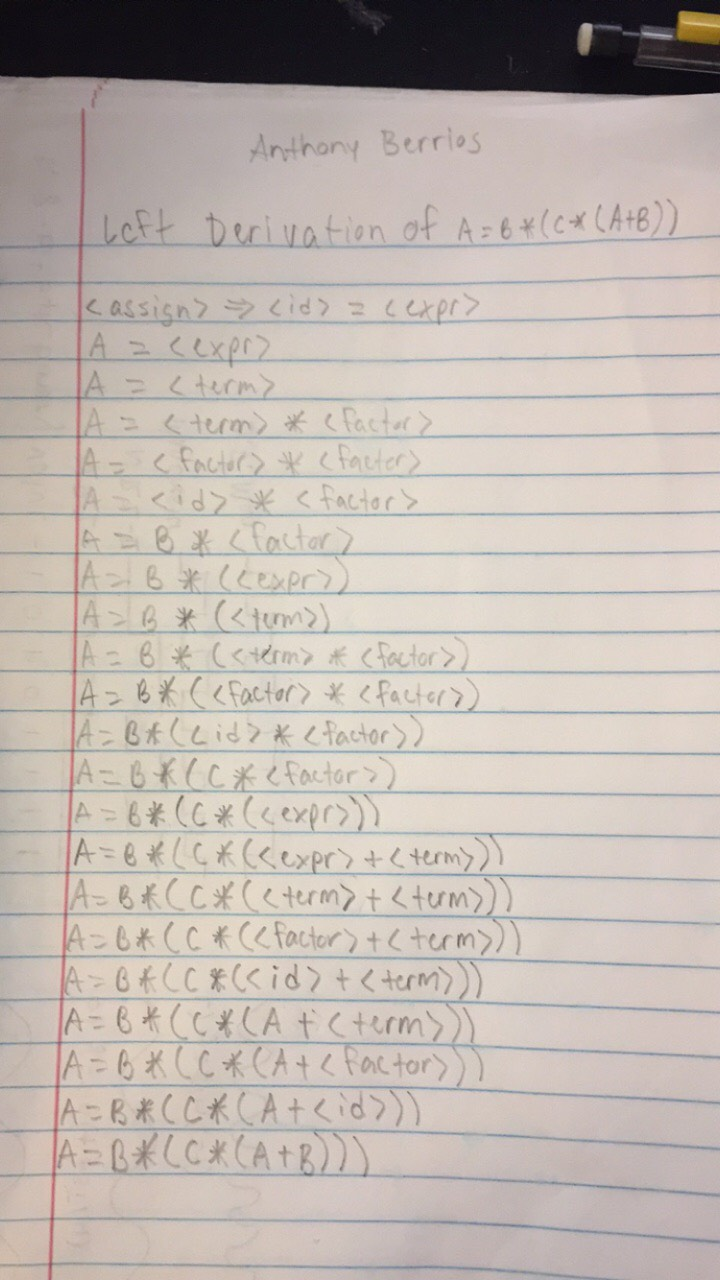 Anthony Berrios
Left Derivation of A=B*(C*(A+B))
<assign> ⇒ <id> = <expr>
A = <expr>
A = <term>
A = <term> * <factor>
A = <factor> * <factor>
A = <id> * <factor>
A = B * <factor>
A = B * (<expr>)
A = B * (<term>)
A = B * (<term> * <factor>)
A = B * (<factor> * <factor>)
A = B*(<id> * <factor>)
A = B*(C*<factor>)
A = B*(C*(<expr>))
A = B*(C*(<expr>+<term>))
A = B*(C*(<term>+<term>))
A = B*(C*(<factor>+<term>))
A = B*(C*(<id>+<term>))
A = B*(C*(A+<term>))
A = B*(C*(A+<factor>))
A = B*(C*(A+<id>))
A = B*(C*(A+B)))